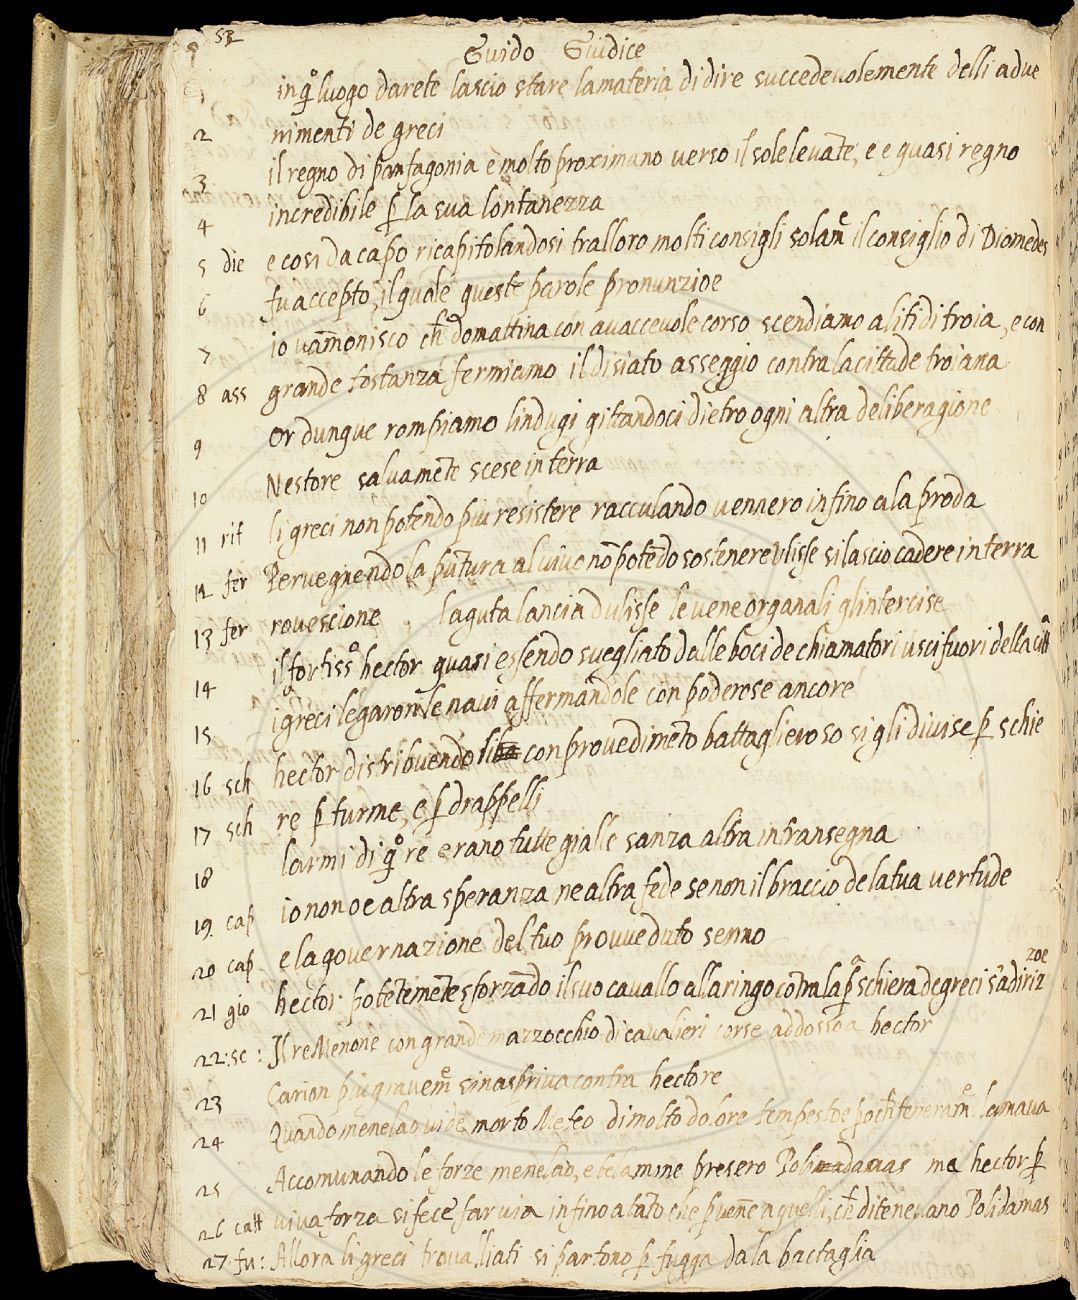 52
Guido Giudice
1 in q̊ luogo darete lascio stare la materia di dire succedeuolemente delli adue
2 nimenti de greci
3 il regno di panfagonia e molto proximano uerso il soleleuāte, e e quasi regno
4 incredibile p̱ la sua lontanezza
5 die e cosi da capo ricapitolandosi tralloro molti consigli solamͤ il consiglio di Diomedes
6 fu accepto, il quale queste parole pronunzioe
7 io uam̄onisco ch̄ domattina con auacceuole corso scendiamo a liti di troia, e con
8 ass grande tostanza fermiamo il disiato asseggio contra la cittade troiana
9 or dunque rompiamo lindugi gittandoci dietro ogni altra deliberagione
10 Nestore saluamēte scese in terra
11 rit li greci non potendo piu resistere racculando uennero infino a la proda
12 fer Peruegnendo la pūtura al uiuo nō potēdo sostenere Vlisse si lascio cadere in terra
13 fer rouescione . laguta lancia dulisse le uene organali glintercise
14 il fortissͦ hector quasi essendo suegliato dalle boci de chiamatori usci fuori della citt
15 i greci legaron le naui affermandole con poderose ancore
16 sch hector distribuendo con prouedimēto battaglieroso si gli diuise p̱ schie
17 sch re p̱ turme, e p̱ drappelli
18 larmi di q̊ re erano tutte gialle sanza altra intransegna
19 cap io non oe altra speranza ne altra fede se non il braccio de la tua uertude
20 cap e la gouernazione del tuo prouueduto senno
21 gio hector potētemēte sforzādo il suo cauallo allaringo cōtra la pᵃ schiera de greci sadiriz
zoe
22 sc: Il re Menone con grande mazzocchio di caualieri corse addosso a hector
23 Carion piu grauemͤ sinaspriua contra hectore
24 Quando menelao uide morto Meteo di molto dolore tempestoe poch̄ teneramͤ lamaua
25 Accomunando le forze menelao, e telamine presero Polidamas ma hector p̱
26 catt uiua forza si fece far uia infino a tāto che p̱uēne a quelli, ch̄ di teneuano Polidamas
27 fu: Allora li greci trauagliati si partono p̱ fugga da la bactaglia